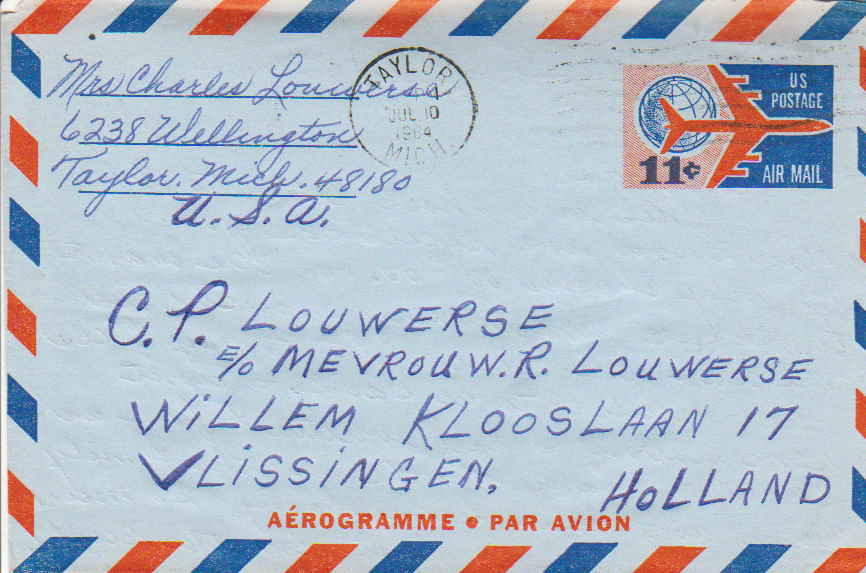 Mrs Charles Louwerse
6238 Wellington
Taylor. Mich. 48180
U.S.A.
TAYLOR
JUL 10
1964
MICH.
US
POSTAGE
11¢
AIR MAIL
C.P. LOUWERSE
c/o MEVROUW.R. LOUWERSE
WILLEM KLOOSLAAN 17
VLISSINGEN,
HOLLAND
AÉROGRAMME • PAR AVION